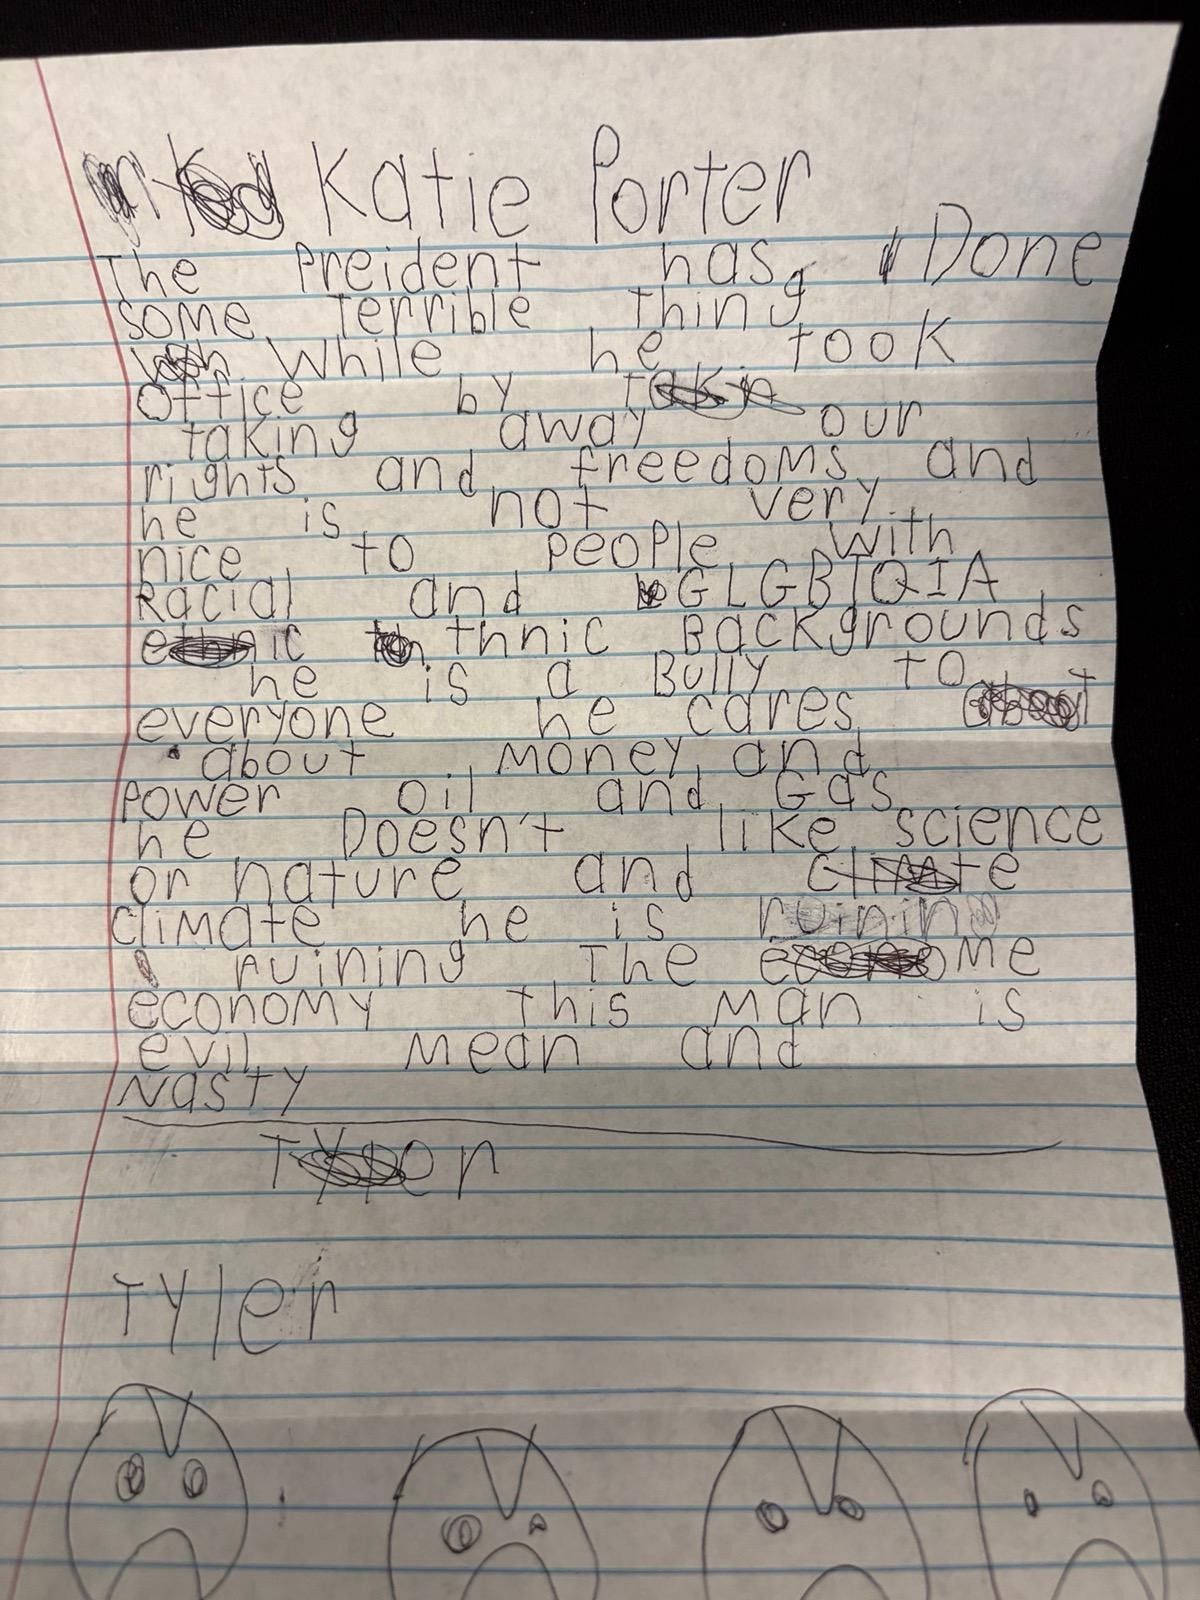 Katie Porter
The Preident has Done
some Terrible thing
While he took
office by
taking away our
rights and freedoms and
he is not very
nice to people with
Racial and GLGBTQIA
thnic BackGrounds
he is a Bully to
everyone he cares
about money and
Power oil and Gas
he Doesn't like science
or nature and
climate he is
ruining The
economy this man is
evil mean and
Nasty
Tyler